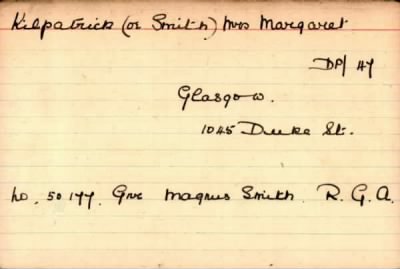 Kilpatrick (or Smith) Mrs Margaret
DP/47
Glasgow.
1045 Duke St.
No. 50177. Gnr Magnus Smith. R.G.A.